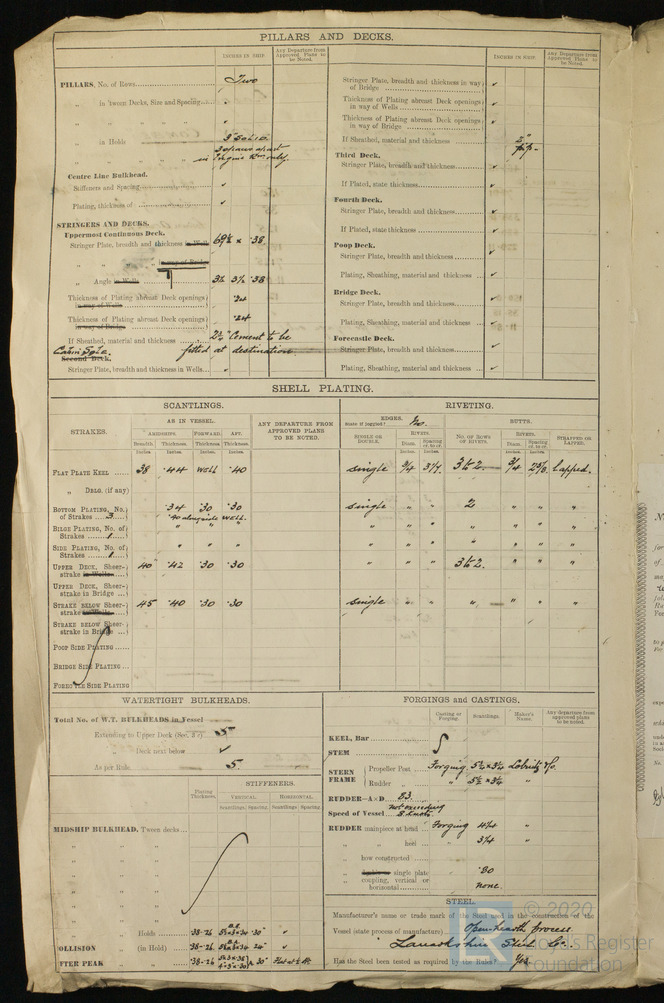 PILLARS AND DECKS.
INCHES IN SHIP.
Any Departure from Approved Plans to be Noted.
PILLARS, No. of Rows Two
„ in 'tween Decks, Size and Spacing ✓
„ in Holds
2 spaces apart
in Engine Rm only.
Centre Line Bulkhead.
Stiffeners and Spacing ✓
Plating, thickness of ✓
STRINGERS AND DECKS.
Uppermost Continuous Deck.
Stringer Plate, breadth and thickness in Wells 69½ × ·38
„ „ „ in way of Bridge
„ Angle in Wells 3½ 3½ ·38
Thickness of Plating abreast Deck openings in way of Wells ·34
Thickness of Plating abreast Deck openings in way of Bridge ·24
If Sheathed, material and thickness 2½" Cement to be
fitted at destination
Second Deck.
Stringer Plate, breadth and thickness in Wells ✓
INCHES IN SHIP.
Any Departure from Approved Plans to be Noted.
Stringer Plate, breadth and thickness in way of Bridge ✓
Thickness of Plating abreast Deck openings in way of Wells ✓
Thickness of Plating abreast Deck openings in way of Bridge ✓
If Sheathed, material and thickness
Third Deck.
Stringer Plate, breadth and thickness ✓
If Plated, state thickness ✓
Fourth Deck.
Stringer Plate, breadth and thickness ✓
If Plated, state thickness ✓
Poop Deck.
Stringer Plate, breadth and thickness ✓
Plating, Sheathing, material and thickness ✓
Bridge Deck.
Stringer Plate, breadth and thickness ✓
Plating, Sheathing, material and thickness ✓
Forecastle Deck.
Stringer Plate, breadth and thickness ✓
Plating, Sheathing, material and thickness ✓
SHELL PLATING.
SCANTLINGS.
RIVETING.
STRAKES.
AS IN VESSEL.
AMIDSHIPS. FORWARD. AFT.
Breadth. Thickness. Thickness. Thickness.
Inches. Inches. Inches. Inches.
ANY DEPARTURE FROM APPROVED PLANS TO BE NOTED.
EDGES.
State if joggled? No.
SINGLE OR DOUBLE.
RIVETS.
Diam. Spacing cr. to cr.
Inches. Inches.
BUTTS.
No. OF ROWS OF RIVETS.
RIVETS.
Diam. Spacing cr. to cr.
Inches. Inches.
STRAPPED OR LAPPED.
FLAT PLATE KEEL 38 ·44 WELL ·40 single ¾ 3 & 2 ¾ Lapped.
„ DBLG. (if any)
BOTTOM PLATING, No. of Strakes 3 ·34 ·30 ·30 single „ „ 2 „ „ „
·40 alongside WELL.
BILGE PLATING, No. of Strakes 1 „ „ „ „ „ „ „ „ „ „
SIDE PLATING, No. of Strakes 1 „ „ „ „ „ „ „ „ „ „
UPPER DECK, Sheer-strake in Wells 40 ·42 ·30 ·30 „ „ „ 3 & 2. „ „ „
UPPER DECK, Sheer-strake in Bridge
STRAKE BELOW Sheer-strake in Wells 45 ·40 ·30 ·30 single „ „ „ „ „ „
STRAKE BELOW Sheer-strake in Bridge
POOP SIDE PLATING
BRIDGE SIDE PLATING
FORECASTLE SIDE PLATING
WATERTIGHT BULKHEADS.
Total No. of W.T. BULKHEADS in Vessel
Extending to Upper Deck (Sec. 3 c) 5
„ Deck next below ✓
As per Rule 5.
Plating Thickness.
STIFFENERS.
VERTICAL. HORIZONTAL.
Scantlings. Spacing. Scantlings. Spacing.
MIDSHIP BULKHEAD, Tween decks
„ „
„ „
„ „
„ „
„ „
„ Holds ·38-·26 30" ✓
OLLISION (in Hold) ·38-·26 24" ✓
FTER PEAK „ ·38-·26 30"
FORGINGS and CASTINGS.
Casting or Forging. Scantlings. Maker's Name. Any departure from approved plans to be noted.
KEEL, Bar
STEM
STERN FRAME
Propeller Post Forging 5½ × 3¼ Lobnitz & Co.
Rudder „ „ 5½ × 3¼ „
RUDDER—A×D 83.
Speed of Vessel not exceeding 8 knots.
RUDDER mainpiece at head Forging 4¼ „
„ „ heel 3¼ „
„ how constructed
„ single plate ·80
„ coupling, vertical or horizontal none.
STEEL.
Manufacturer's name or trade mark of the Steel used in the construction of the
Vessel (state process of manufacture) Open hearth process.
Lanarkshire Steel Co.
Has the Steel been tested as required by the Rules? Yes.
© 2020
Lloyd's Register
Foundation